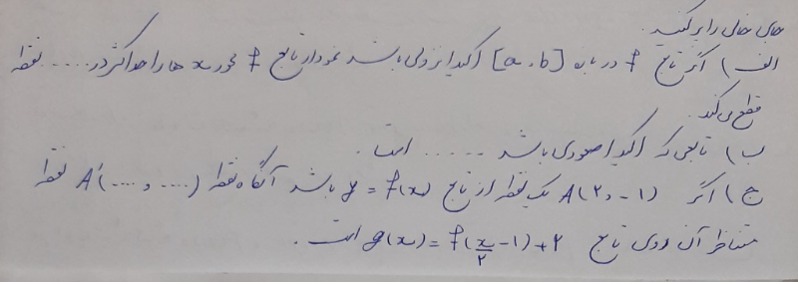 جای خالی را پر کنید.
الف) اگر تابع f در بازه [a,b] اکیدا نزولی باشد نمودار تابع f محور x ها را حداکثر در ..... نقطه
قطع می کند.
ب) تابعی که اکیدا صعودی باشد ...... است.
ج) اگر A(۲,-۱) یک نقطه از تابع y = f(x) باشد آنگاه نقطه A'(....,....) نقطه
متناظر آن روی تابع g(x) = f(x/۲ -۱)+۲ است.